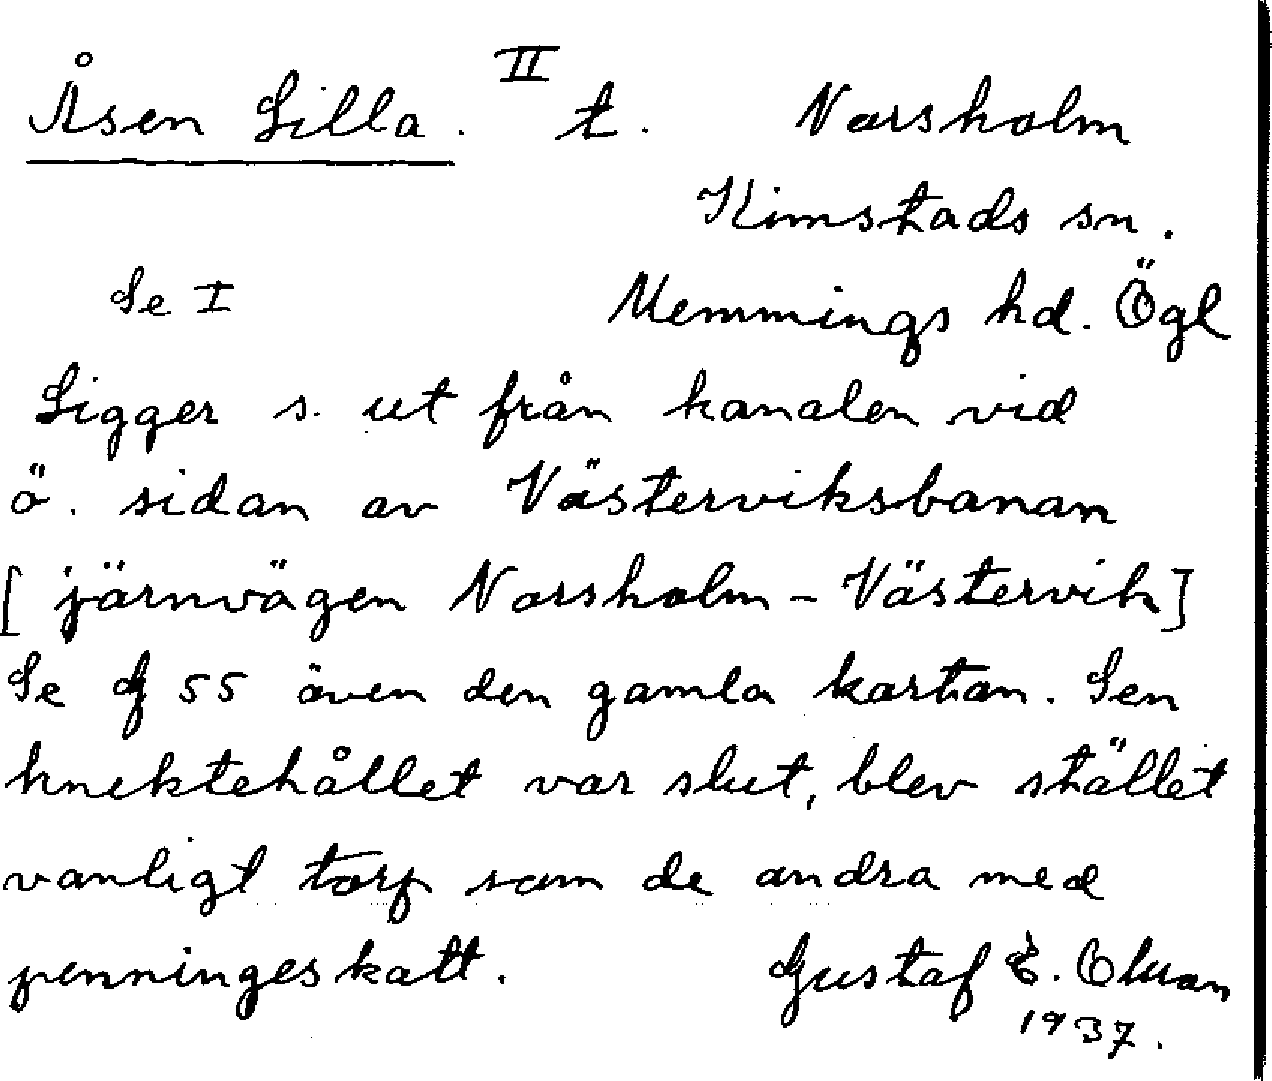 Åsen Lilla. II t. Norsholm
Kimstads sn.
Se I Memmings hd. Ögl
Ligger s. ut från kanalen vid
ö. sidan av Västerviksbanan
[järnvägen Norsholm - Västervik]
Se 55 även den gamla kartan. Sen
knektehållet var slut, blev stället
vanligt torp som de andra med
penningeskatt. Gustaf E.
1937.